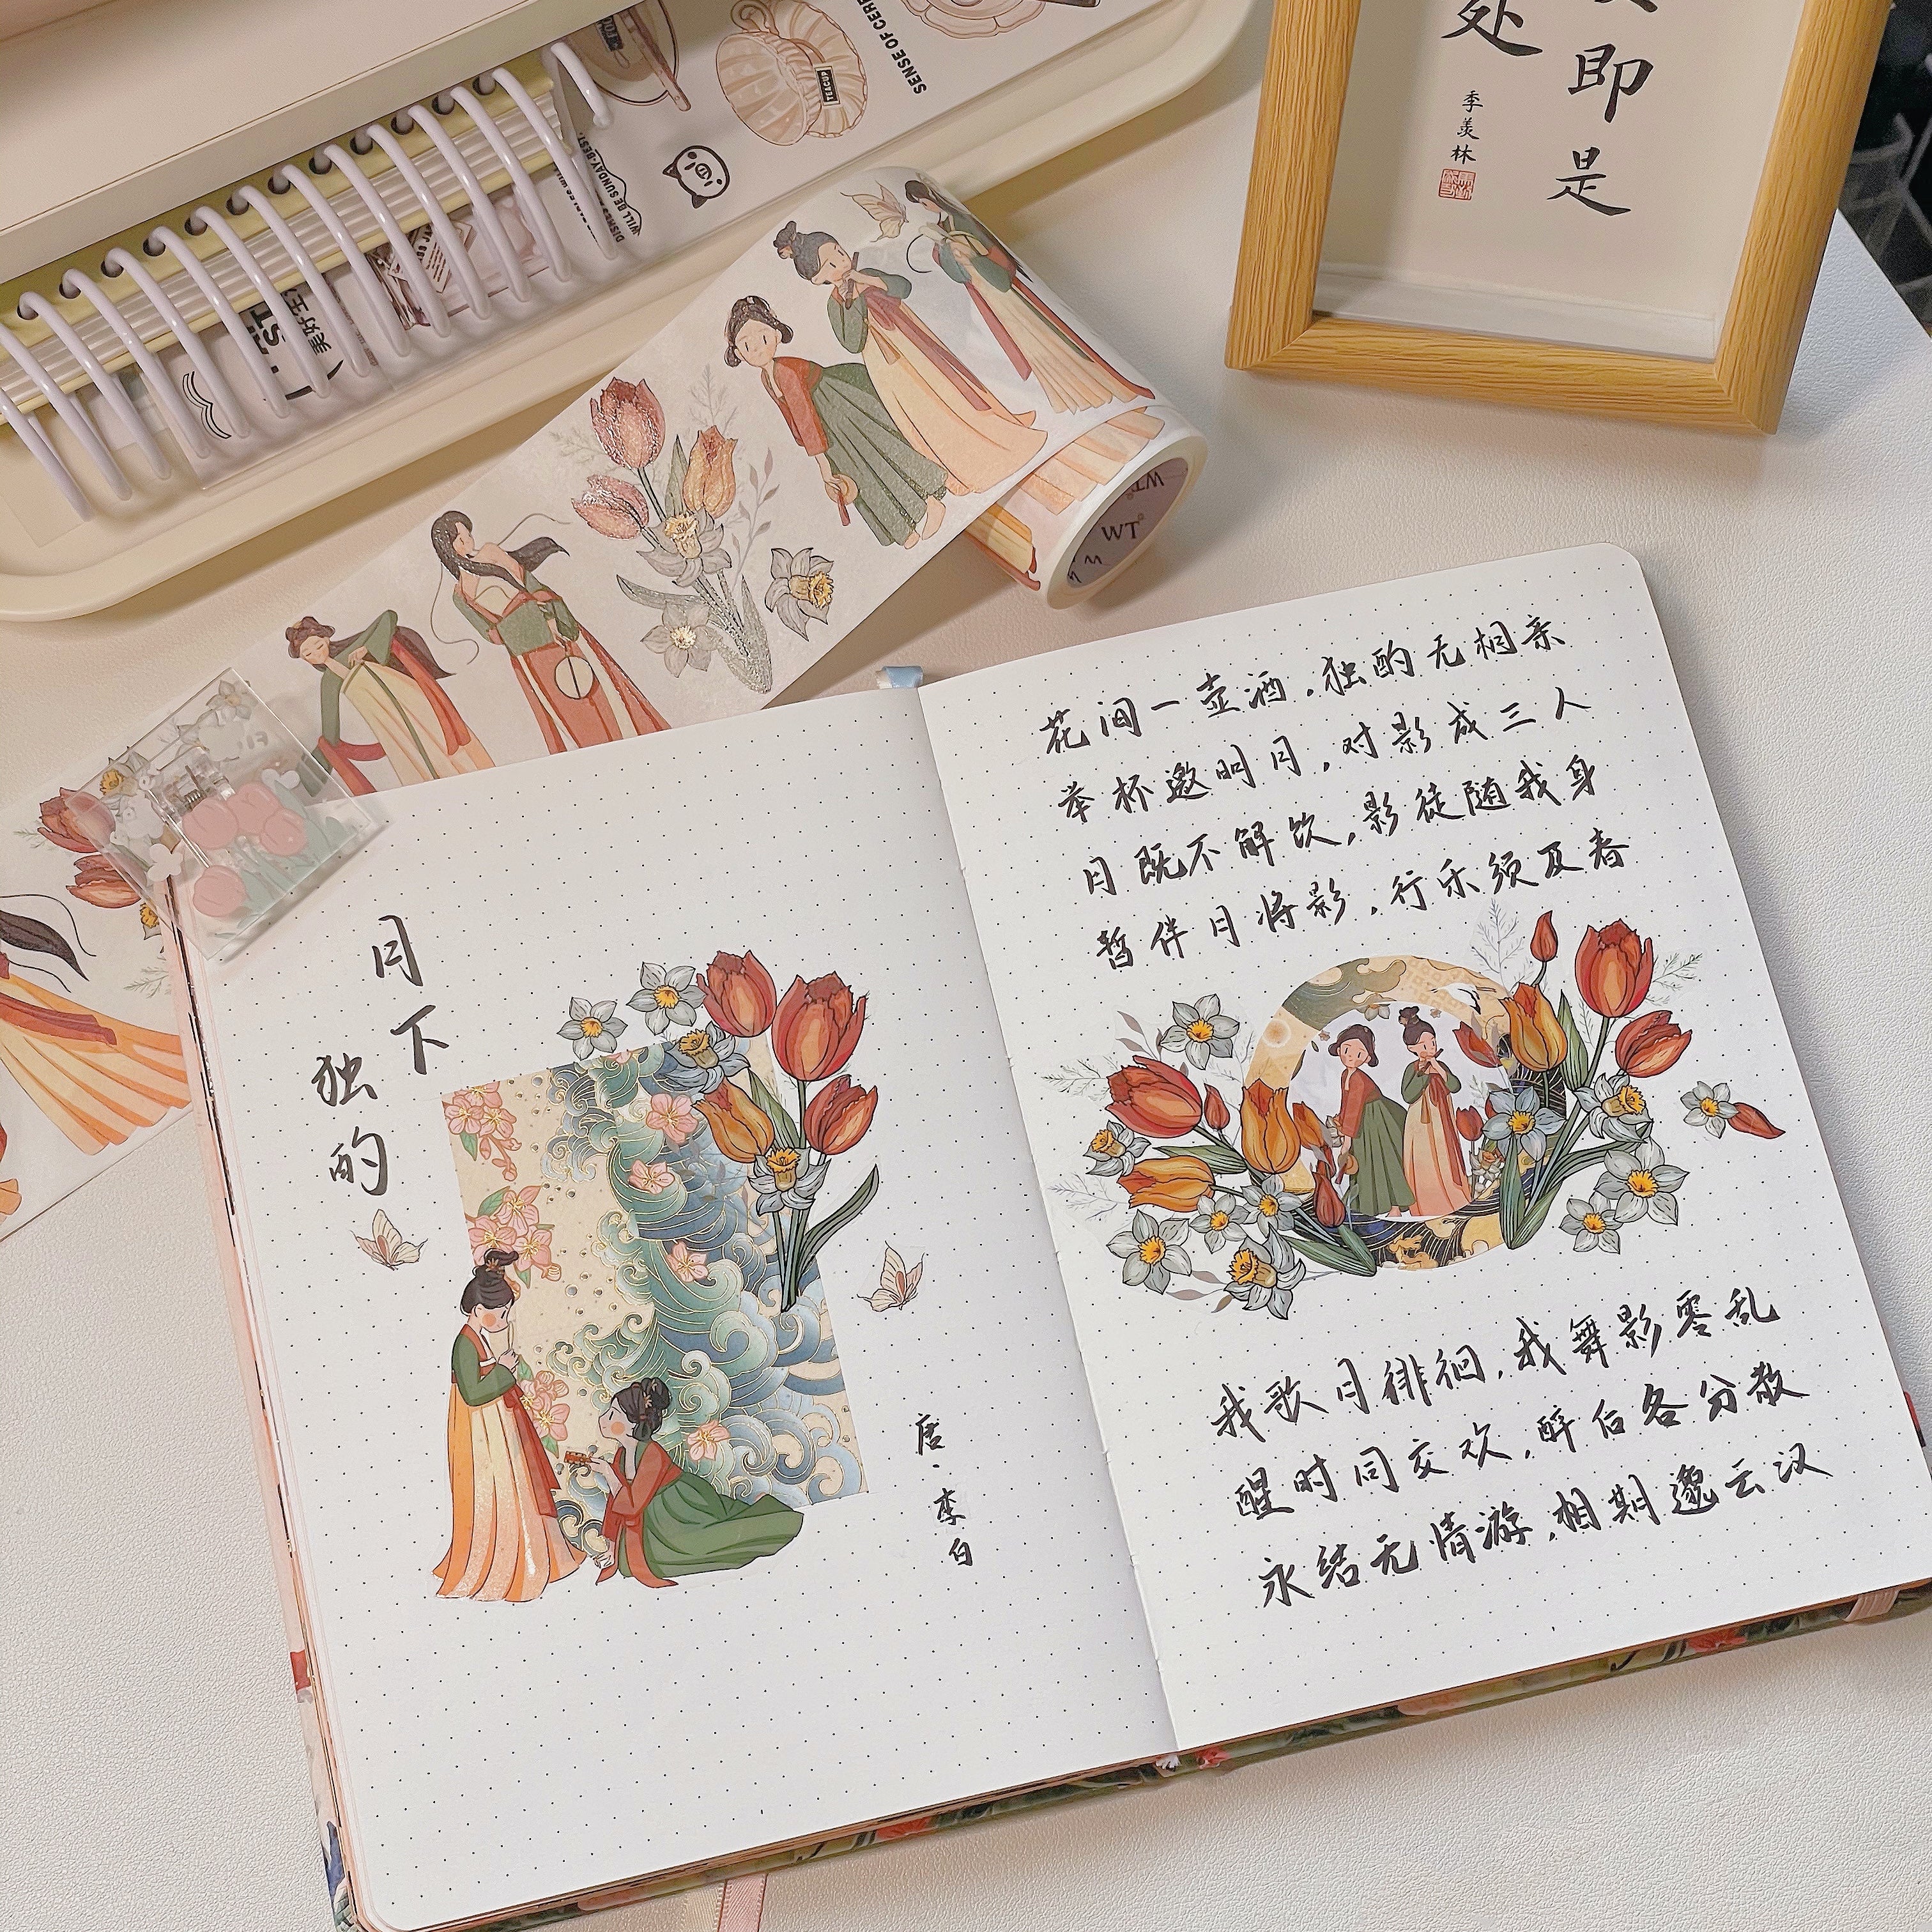 SENSE OF CERE
TEACUP
WILL BE SUNDAY-BEST.
美好生
即是
处
季羡林
WT
月下
独酌
唐·李白
花间一壶酒，独酌无相亲
举杯邀明月，对影成三人
月既不解饮，影徒随我身
暂伴月将影，行乐须及春
我歌月徘徊，我舞影零乱
醒时同交欢，醉后各分散
永结无情游，相期邈云汉